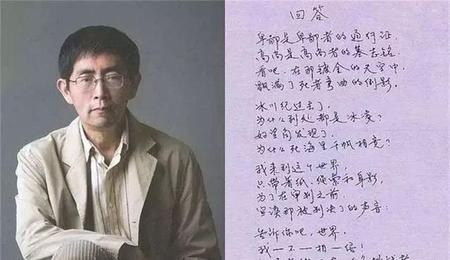 回答
卑鄙是卑鄙者的通行证,
高尚是高尚者的墓志铭。
看吧,在那镀金的天空中,
飘满了死者弯曲的倒影。
冰川纪过去了,
为什么到处都是冰凌?
好望角发现了,
为什么死海里千帆相竞?
我来到这个世界,
只带着纸、绳索和身影,
为了在审判之前,
宣读那被判决了的声音:
告诉你吧,世界,
我—不—相—信!